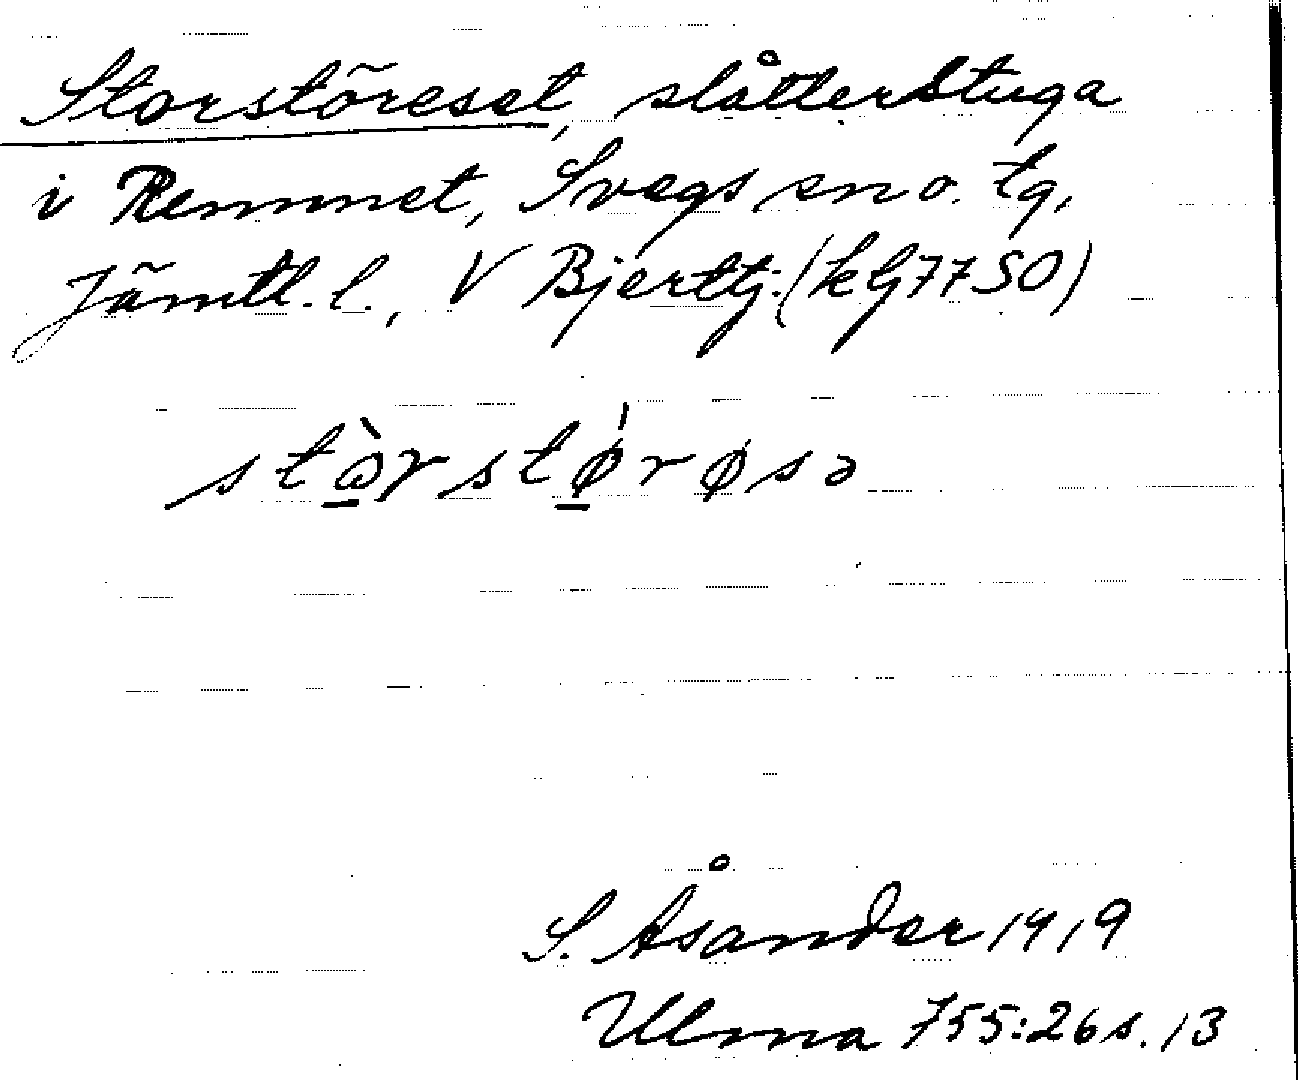 Storstöreset, slåtterstuga
i Remmet, Svegs sn o. tg,
Jämtl. l., V Bjerttj. (kG7750)
stɷ̀rstǿrøsə
S. Åsander 1919
Ulma 755:26 s. 13